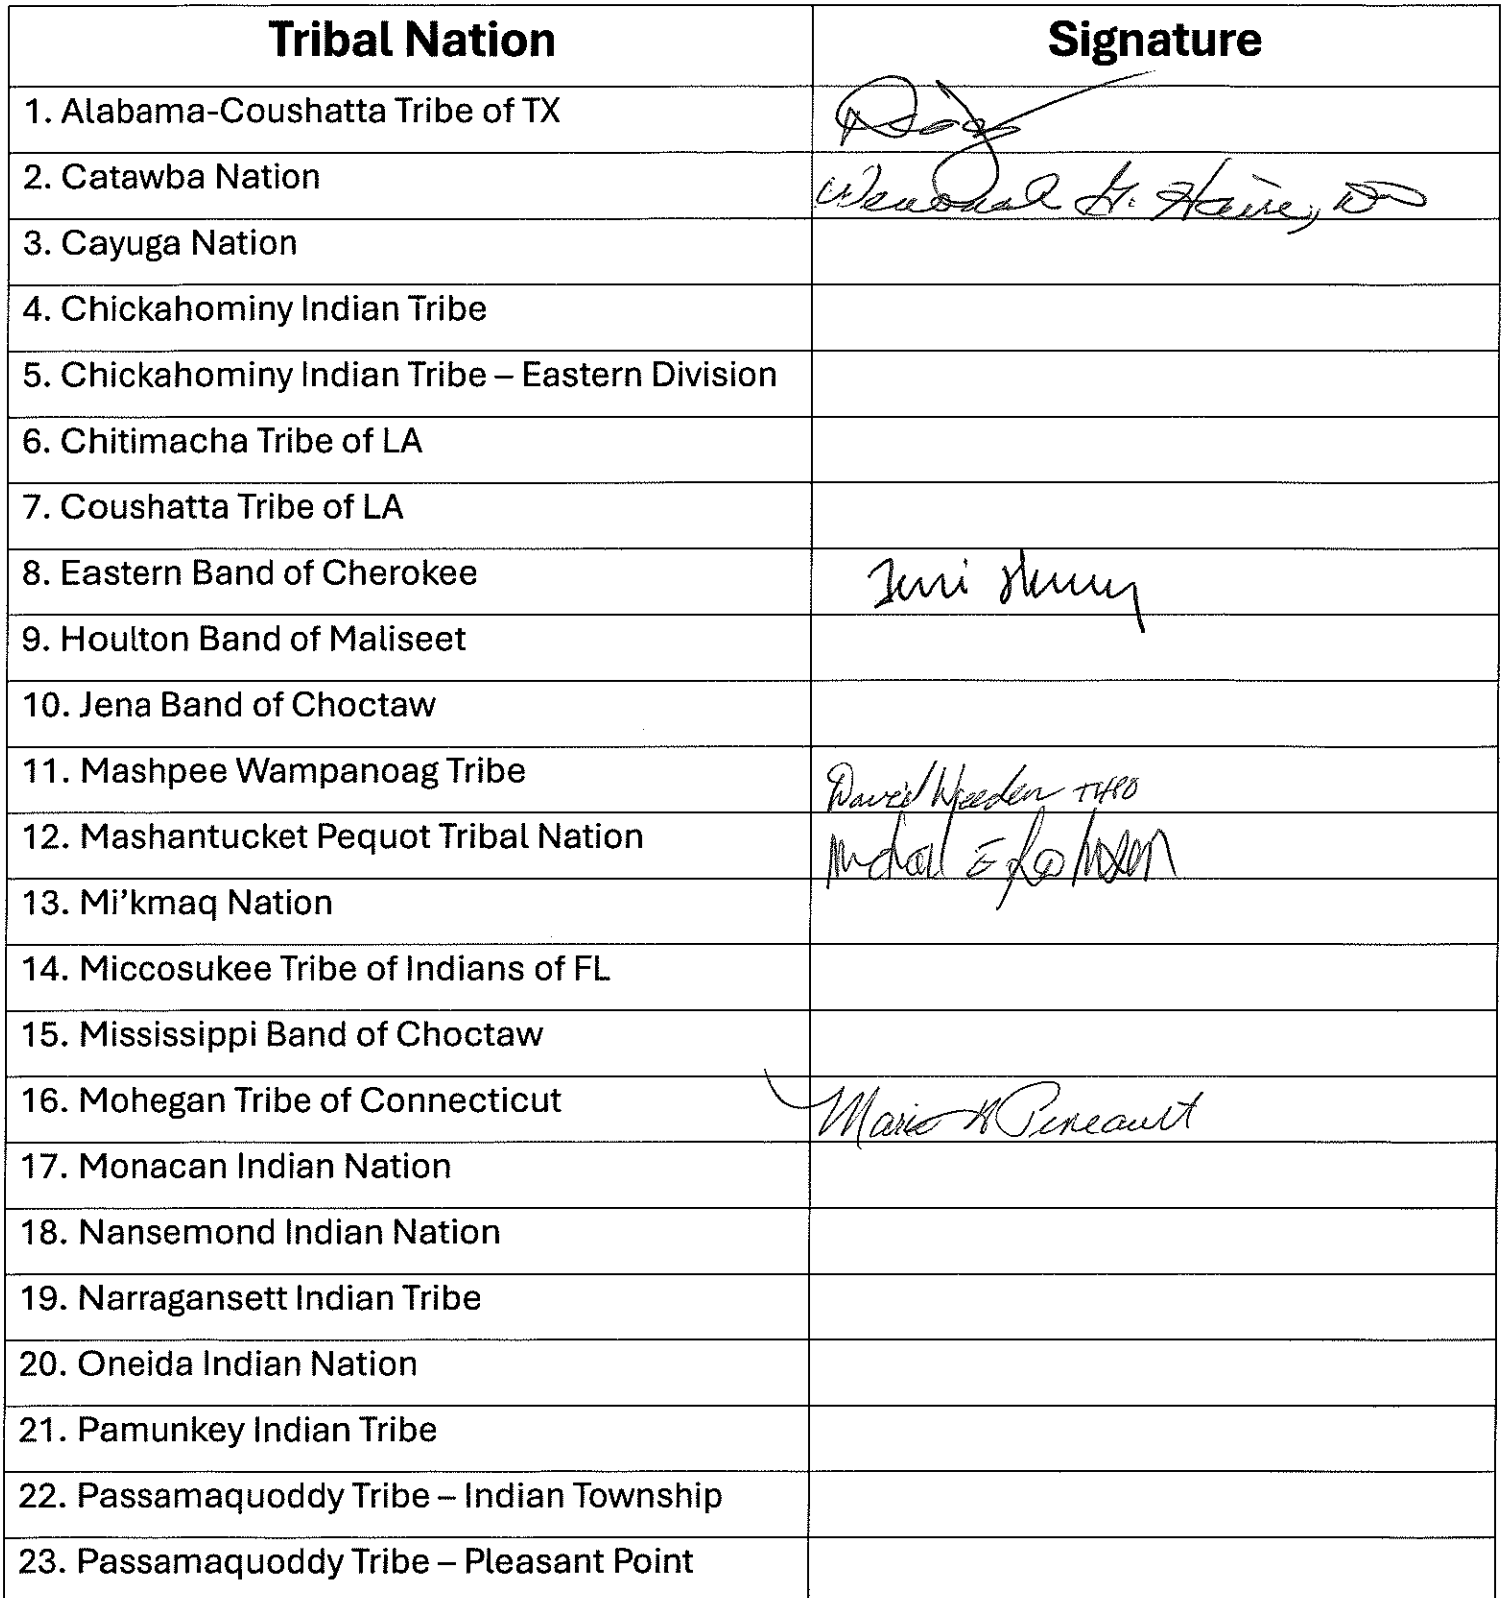 Tribal Nation Signature
1. Alabama-Coushatta Tribe of TX
2. Catawba Nation Wenonah G. Haire, DMD
3. Cayuga Nation
4. Chickahominy Indian Tribe
5. Chickahominy Indian Tribe – Eastern Division
6. Chitimacha Tribe of LA
7. Coushatta Tribe of LA
8. Eastern Band of Cherokee Terri Henry
9. Houlton Band of Maliseet
10. Jena Band of Choctaw
11. Mashpee Wampanoag Tribe David Weeden THPO
12. Mashantucket Pequot Tribal Nation Michael E Johnson
13. Mi’kmaq Nation
14. Miccosukee Tribe of Indians of FL
15. Mississippi Band of Choctaw
16. Mohegan Tribe of Connecticut Pineault
17. Monacan Indian Nation
18. Nansemond Indian Nation
19. Narragansett Indian Tribe
20. Oneida Indian Nation
21. Pamunkey Indian Tribe
22. Passamaquoddy Tribe – Indian Township
23. Passamaquoddy Tribe – Pleasant Point